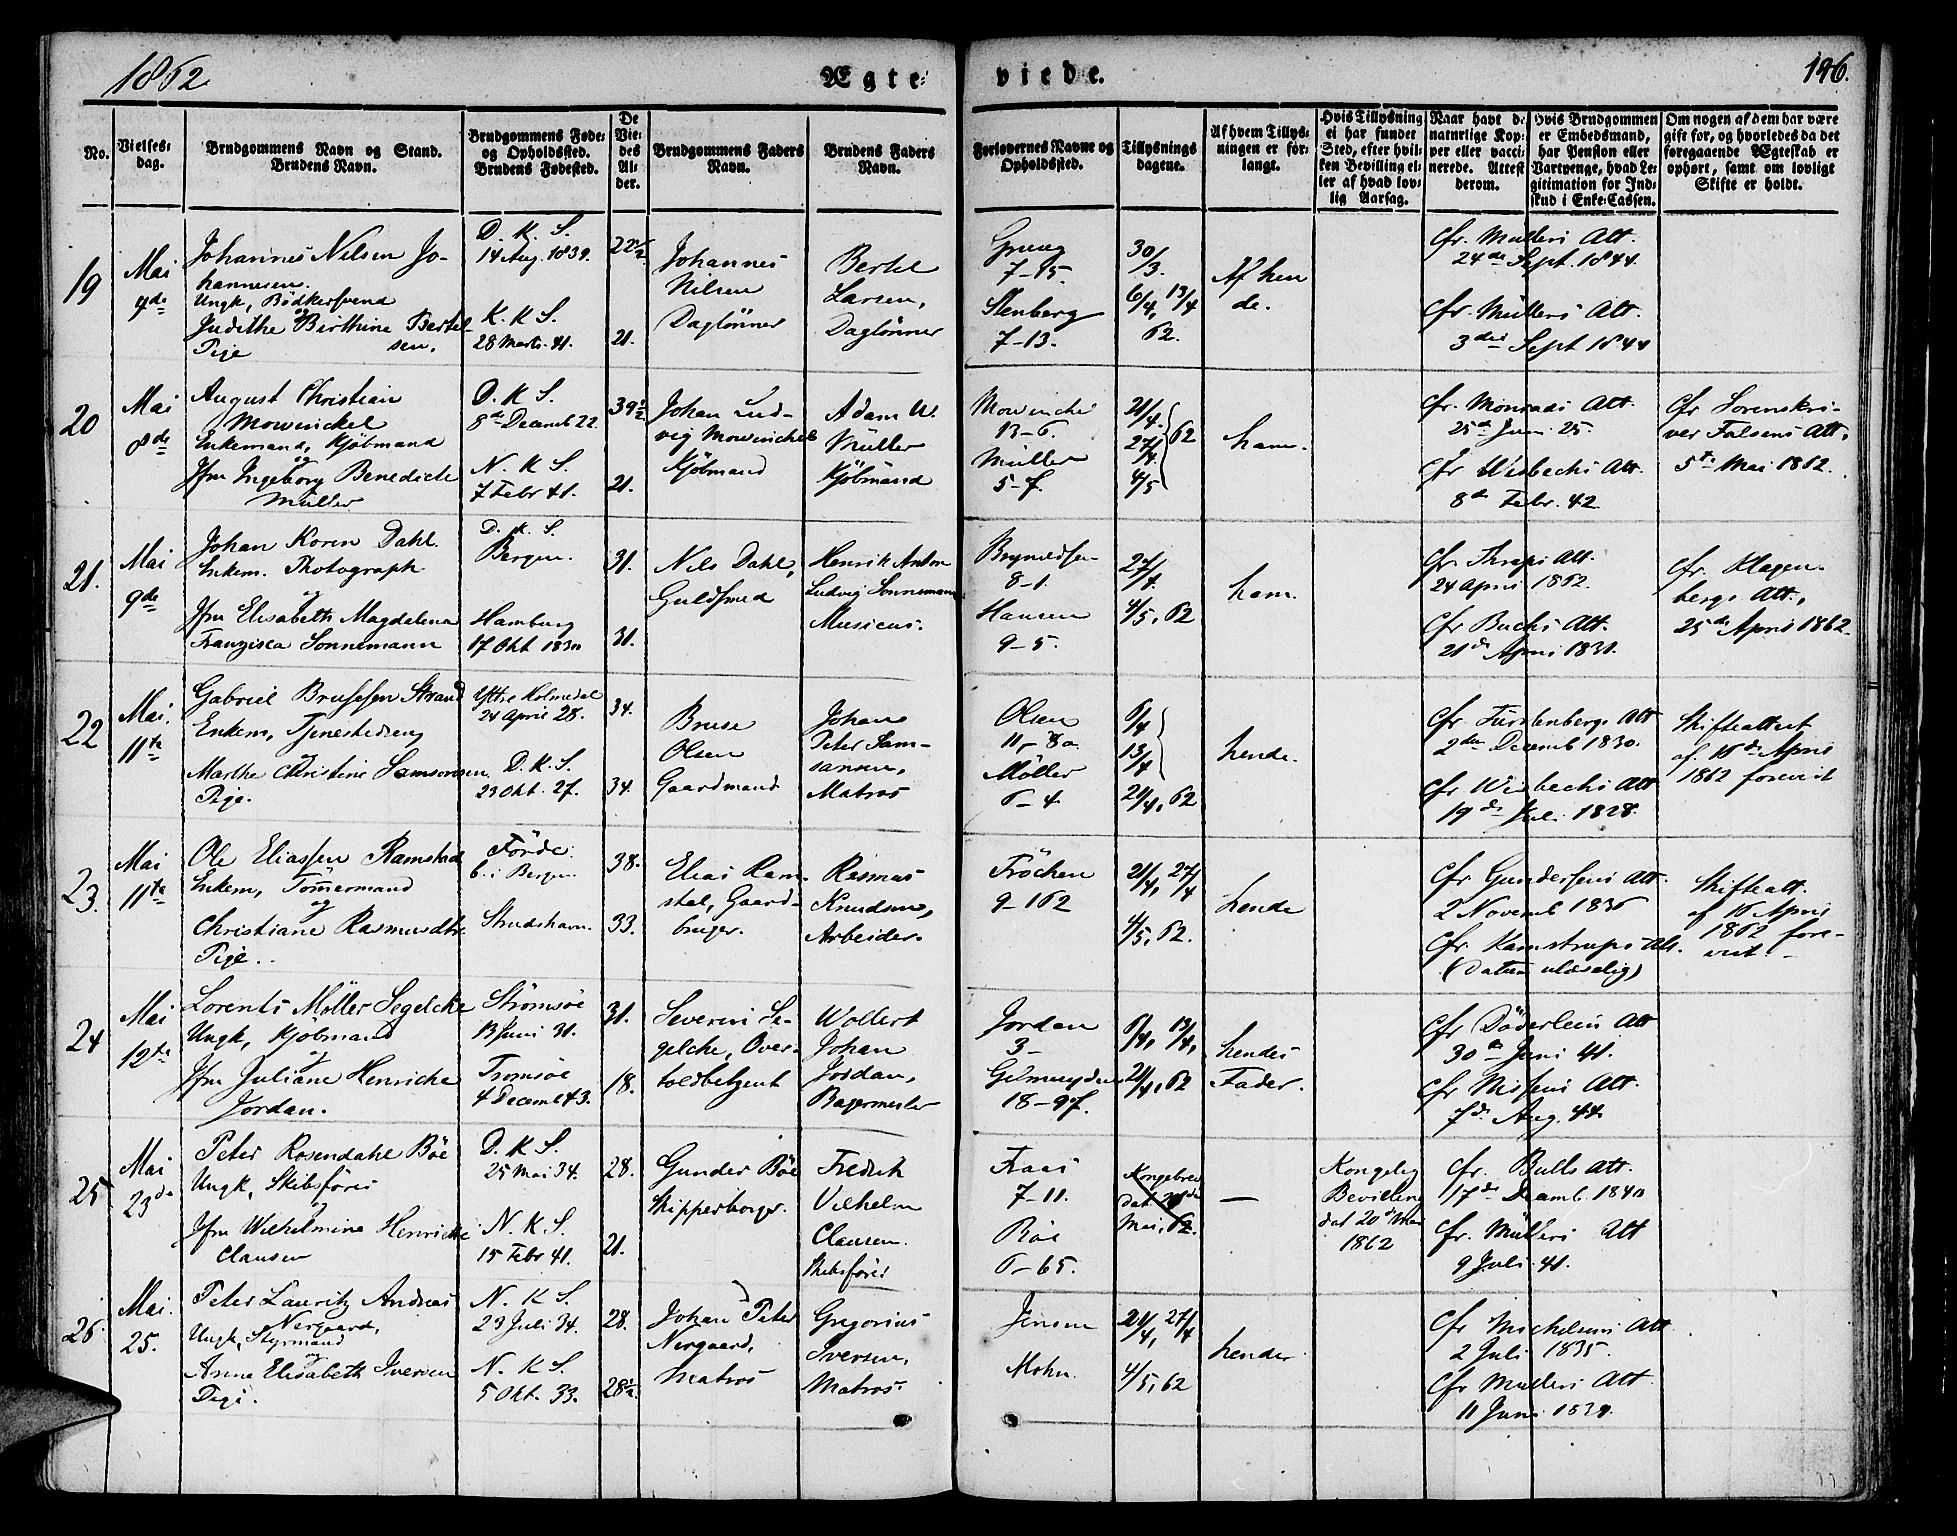 1862
Ægte-
viede.
146.
No.
Vielses-
dag.
Brudgommens Navn og Stand.
Brudens Navn.
Brudgommens Føde-
og Opholdssted.
Brudens Fødested.
De
Vie-
des
Al-
der.
Brudgommens Faders
Navn.
Brudens Faders
Navn.
Forlovernes Navne og
Opholdssted.
Tillysnings
dagene.
Af hvem Tillys-
ningen er for-
langt.
Hvis Tillysning
ei har fundet
Sted, efter hvil-
ken Bevilling el-
ler af hvad lov-
lig Aarsag.
Naar havt de
naturlige Kop-
per eller vacci-
nerede. Attest
derom.
Hvis Brudgommen
er Embedsmand,
har Pension eller
Vartpenge, hvad Le-
gitimation for Ind-
skud i Enke-Cassen.
Om nogen af dem har være
gift før, og hvorledes da det
foregaaende Ægteskab er
ophørt, samt om lovligt
Skifte er holdt.
19
Mai
7de
Johannes Nilsen Jo-
hannesen.
Ungk, Bödkersvend
og
Judithe Birthine Bertel-
sen.
Pige
D. K. S.
14 Aug. 1839.
K. K. S.
28 Marts. 41.
22 1/2
21.
Johannes
Nilsen
Daglönner
Bertel
Larsen,
Daglönner
7-95.
Stenberg
7-13.
30/3.
6/4, 13/4
62.
Af hen
de.
Cfr. Müllers Att.
24de Sept. 1844.
Cfr. Müllers Att.
3die Sept 1844
20
Mai
8de
August Christian
Mowinckel
Enkemand, Kjöbmand
og
Jfm Ingeborg Benedicte
Müller
D. K. S.
8de Decemb 22.
N. K. S.
7 Febr 41.
39 1/2
21.
Johan Lud-
vig Mowinckel
Kjöbmand
Adam W.
Müller
Kjöbmand
Mowinckel
13-6.
Müller
5-7.
21/4.
27/4. 62
4/5
ham.
Cfr. Monrads Att.
25de Juni 25.
Cfr Wisbechs Att.
8de Febr. 42.
Cfr Sorenskri-
ver Falsens Att.
5te Mai 1862.
21.
Mai
9de
Johan Koren Dahl.
Enkem. Photograph
og
Jfm Elisabeth Magdelena
Franzisca Sonnemann
D. K. S.
Bergen.
Hamburg
17 Okt 1830
31.
31.
Nils Dahl,
Guldsmed
Henrik Anton
Ludvig Sonnemann
Musicus.
Brynildsen
8-1.
Hansen
9-5.
27/4
4/5, 62
ham.
Cfr. Thraps Att.
24 April 1862.
Cfr Buchs Att.
21de April 1831.
Cfr. Klagen-
bergs Att.,
25de April 1862.
22
Mai.
11te
Gabriel Brusesen Strand
Enkem, Tjenestedreng
og
Marthe Christine Samsonsen
Pige.
Yttre Holmedal
24 April 28.
D. K. S.
23 Okt. 27.
34.
34.
Bruse
Olsen
Gaardmand
Johan
Peter Sam-
sonsen,
Matros
Olsen
11-80
Möller
6-4.
6/4
13/4
21/4, 62
hende.
Cfr. Fürstenbergs Att
2den Decemb 1830.
Cfr Wisbechs Att
19de Juli 1828.
Skifteattest
af. 16de April
1862 forevist
23.
Mai
11te
Ole Eliassen Ramstad
Enkem, Tömmermand
og
Christiane Rasmusdtr.
Pige.
Förde.
b. i Bergen
Strudshavn.
38.
33.
Elias Ram-
stad, Gaard-
bruger.
Rasmus
Knudsen,
Arbeider.
Fröchen
9-162
21/4, 27/4
4/5, 62.
hende
Cfr Gundersens Att.
2 Novemb 1836
Cfr. Kamstrups Att.
(Datum ulæselig)
Skifteatt.
af 16 April
1862 fore-
vist.
24
Mai
12te
Lorents Möller Segelcke
Ungk, Kjöbmand
og
Jfm Juliane Henricke
Jordan.
Strömsöe
13 Juni 31.
Tromsöe
4 Decemb 43.
31.
18.
Severin Se-
gelcke, Over-
toldbetjent
Wollert
Johan
Jordan,
Bagermester
Jordan
3-
18-97.
6/4, 13/4,
21/4, 62
hendes
Fader.
Cfr Döderleins Att
30de Juni 41.
Cfr. Nissens Att.
7de Aug. 44.
25.
Mai
23de
Peter Rosendahl Böe
Ungk, Skibsförer
og
Jfm Wilhelmine Henricke
Clausen
D. K. S.
25 Mai 34.
N. K. S.
15 Febr 41.
28.
21.
Gunder Böe
Skipperborger.
Fredrik
Vilhelm
Clausen.
Skibsförer
Faas
7-11.
Böe
6-65.
Kongebrev
dat 20de
Mai, 62.
—
Kongelig
Bevilling
dat 20de Mai
1862
Cfr. Bulls Att.
17de Decemb. 1840
Cfr. Müllers Att
9 Juli 41.
26.
Mai.
25.
Peter Lauritz Andreas
Nergaard,
Ungk, Styrmand
og
Anne Elisabeth Iversen
Pige.
N. K S.
23 Juli 34.
N. K S.
5 Okt. 33.
28.
28 1/2.
Johan Peter
Nergaard,
Matros
Gregorius
Iversen,
Matros.
Jensen
Mohn.
21/4, 27/4
4/5, 62
hender
Cfr Michelsens Att
2 Juli 1835.
Cfr Müllers Att
11 Juni 1834.